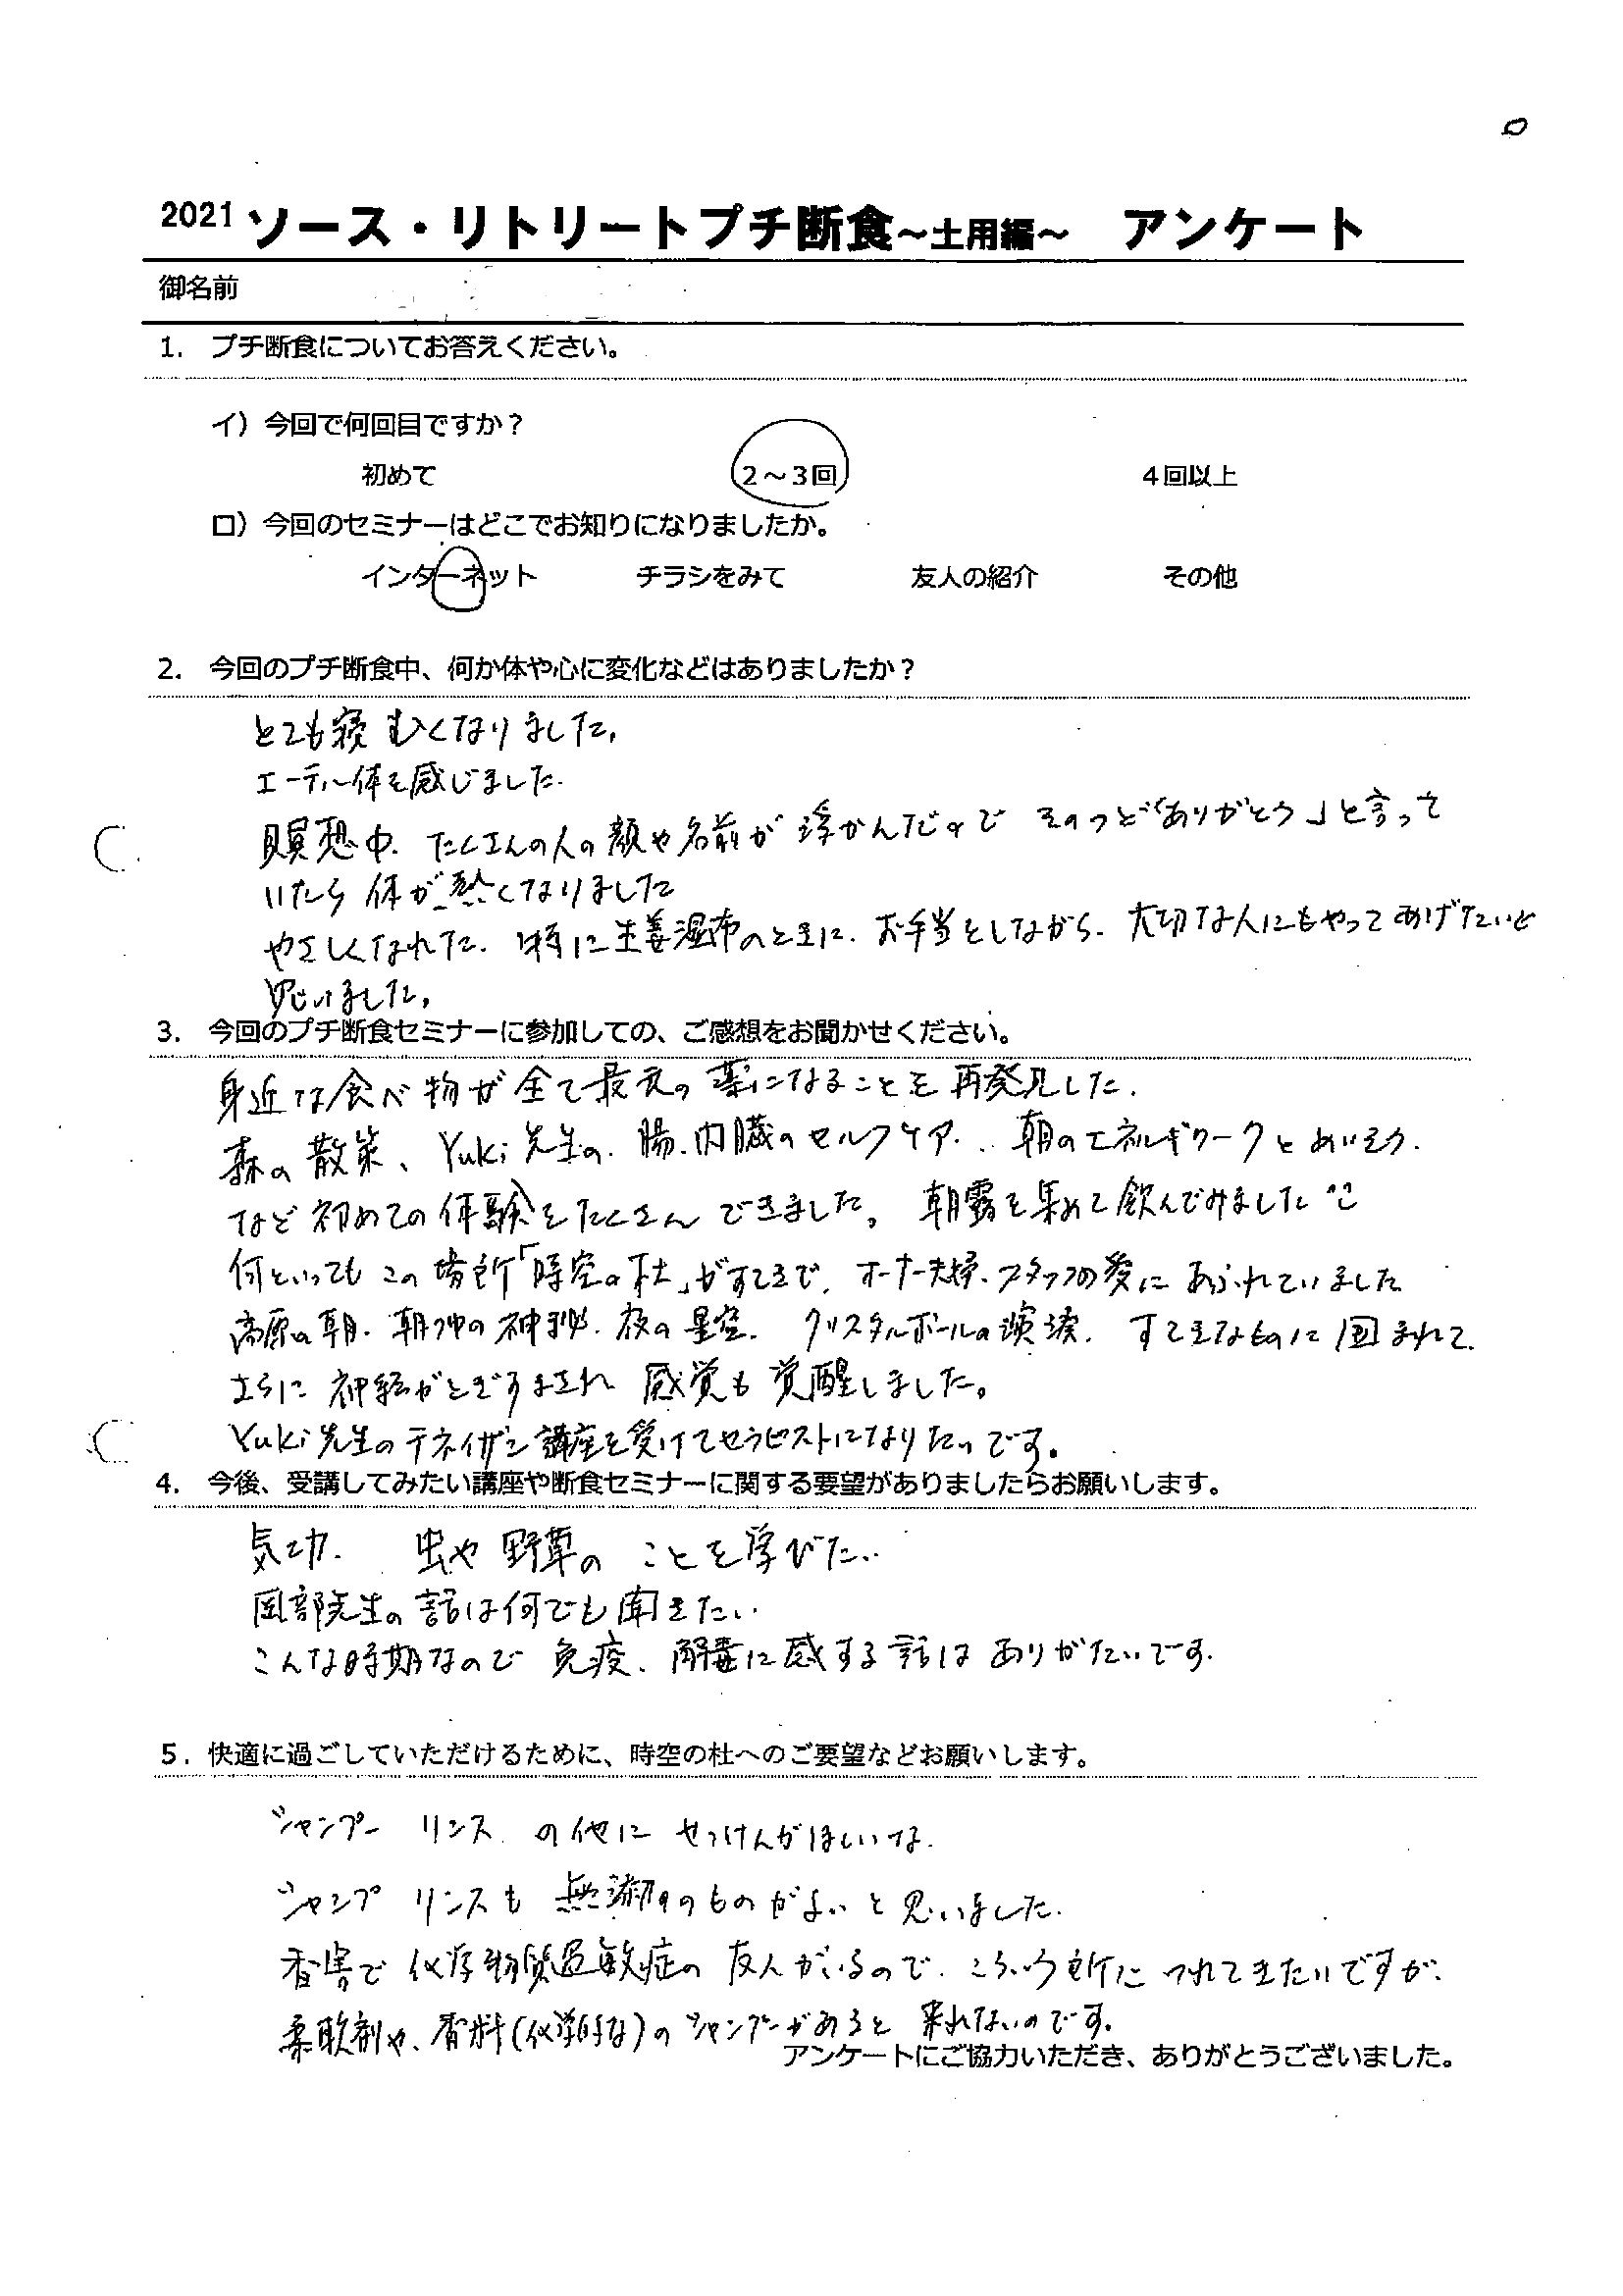 2021 ソース・リトリートプチ断食～土用編～　アンケート
御名前
1.　プチ断食についてお答えください。
イ）今回で何回目ですか？
初めて　2～3回　4回以上
ロ）今回のセミナーはどこでお知りになりましたか。
インターネット　チラシをみて　友人の紹介　その他
2.　今回のプチ断食中、何か体や心に変化などはありましたか？
とても寝むくなりました。
エーテル体を感じました.
瞑想中、たくさんの人の顔や名前が浮かんだので そのつど「ありがとう」と言って
いたら 体が熱くなりました
やさしくなれた. 特に生姜湿布のときに、お手当をしながら、大切な人にもやってあげたいと
思いました。
3.　今回のプチ断食セミナーに参加しての、ご感想をお聞かせください。
身近な食べ物が全て最高の薬になることを再発見した.
森の散策、Yuki先生の 腸、内臓のセルフケア、朝のエネルギワークと
など初めての体験をたくさんできました。朝露を集めて飲んでみました
何といってもこの場所「時空の杜」がすてきで、オーナー夫婦、スタッフの愛にあふれていました
高原の朝、の神秘、夜の星空、クリスタルボールの演奏、すてきなものに囲まれて、
さらに神経がとぎすまされ 感覚も覚醒しました。
Yuki先生の 講座を受けてセラピストになりたいです。
4.　今後、受講してみたい講座や断食セミナーに関する要望がありましたらお願いします。
気功、虫や野草のことを学びたい
岡部先生の話は何でも聞きたい
こんな時期なので 免疫、解毒に感する話はありがたいです.
5．快適に過ごしていただけるために、時空の杜へのご要望などお願いします。
シャンプー リンス の他に せっけんがほしいな.
シャンプ リンスも 無添加のものがよいと思いました.
香害で 化学物質過敏症の友人がいるので、こういう所につれてきたいですが、
柔軟剤や、香料(化学的な)のシャンプーがあると 来れないのです.
アンケートにご協力いただき、ありがとうございました。